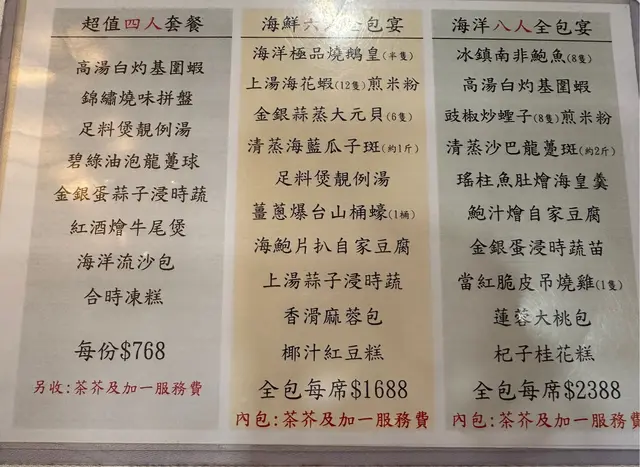 超值四人套餐
高湯白灼基圍蝦
錦繡燒味拼盤
足料煲靚例湯
碧綠油泡龍躉球
金銀蛋蒜子浸時蔬
紅酒燴牛尾煲
海洋流沙包
合時凍糕
每份$768
另收:茶芥及加一服務費
海鮮六人全包宴
海洋極品燒鵝皇(半隻)
上湯海花蝦(12隻)煎米粉
金銀蒜蒸大元貝(6隻)
清蒸海藍瓜子斑(約1斤)
足料煲靚例湯
薑蔥爆台山桶蠔(1桶)
海鮑片扒自家豆腐
上湯蒜子浸時蔬
香滑麻蓉包
椰汁紅豆糕
全包每席$1688
內包:茶芥及加一服務費
海洋八人全包宴
冰鎮南非鮑魚(8隻)
高湯白灼基圍蝦
豉椒炒蟶子(8隻)煎米粉
清蒸沙巴龍躉斑(約2斤)
瑤柱魚肚燴海皇羹
鮑汁燴自家豆腐
金銀蛋浸時蔬苗
當紅脆皮吊燒雞(1隻)
蓮蓉大桃包
杞子桂花糕
全包每席$2388
內包:茶芥及加一服務費